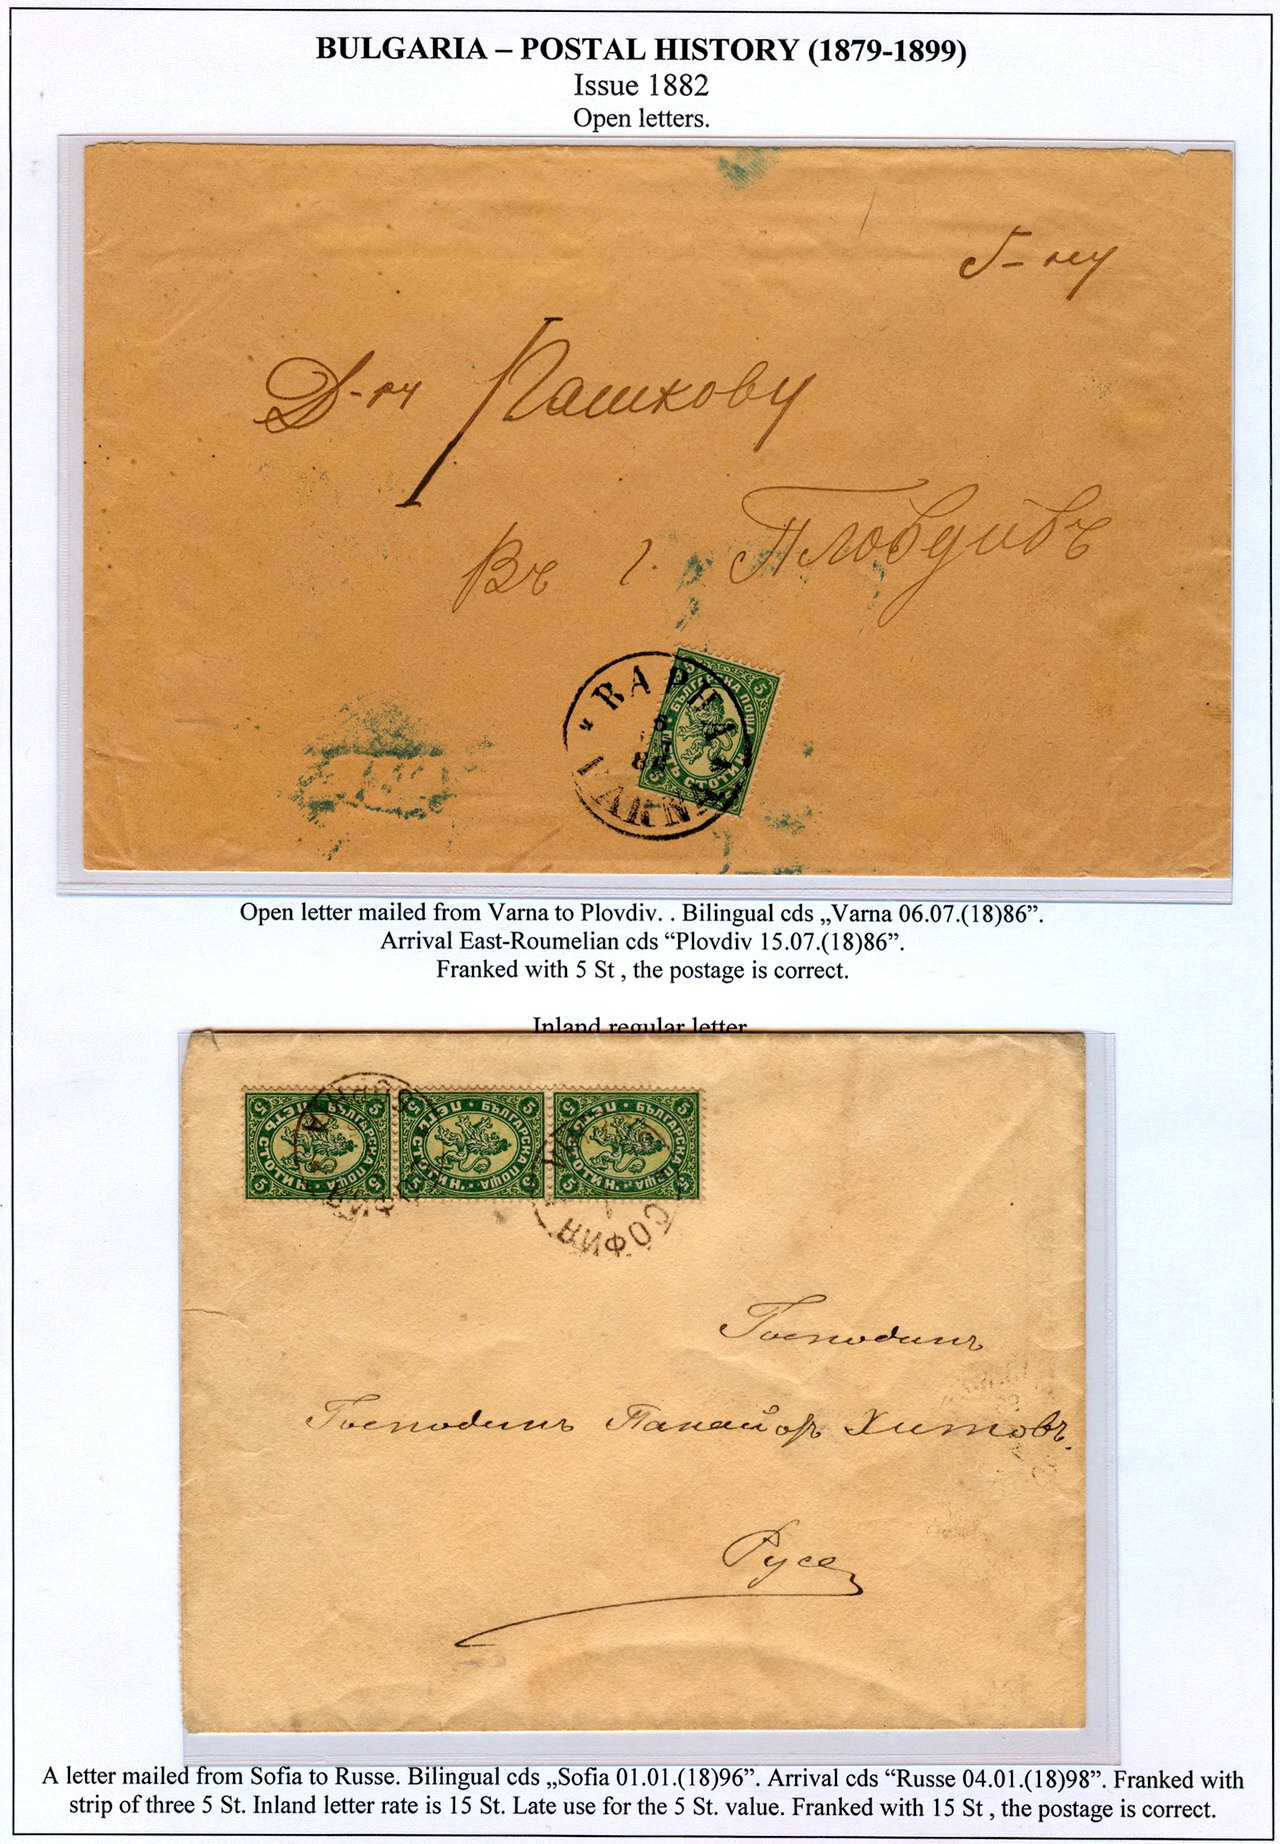 BULGARIA – POSTAL HISTORY (1879-1899)
Issue 1882
Open letters.
Г-ну
Д-ру Пашкову
Въ г. Пловдивъ
ВАРНА
6
VARNA
5 5
БЪЛГАРСКА ПОЩА
ПЕТЪ СТОТИН.
Open letter mailed from Varna to Plovdiv. . Bilingual cds „Varna 06.07.(18)86”.
Arrival East-Roumelian cds “Plovdiv 15.07.(18)86”.
Franked with 5 St , the postage is correct.
Inland regular letter
БЪЛГАРСКА ПОЩА ПЕТЪ СТОТИН.
БЪЛГАРСКА ПОЩА ПЕТЪ СТОТИН.
БЪЛГАРСКА ПОЩА ПЕТЪ СТОТИН.
СОФИЯ
СОФИЯ
Господинъ
Господинъ Панайор Хитовъ.
Русе
A letter mailed from Sofia to Russe. Bilingual cds „Sofia 01.01.(18)96”. Arrival cds “Russe 04.01.(18)98”. Franked with
strip of three 5 St. Inland letter rate is 15 St. Late use for the 5 St. value. Franked with 15 St , the postage is correct.